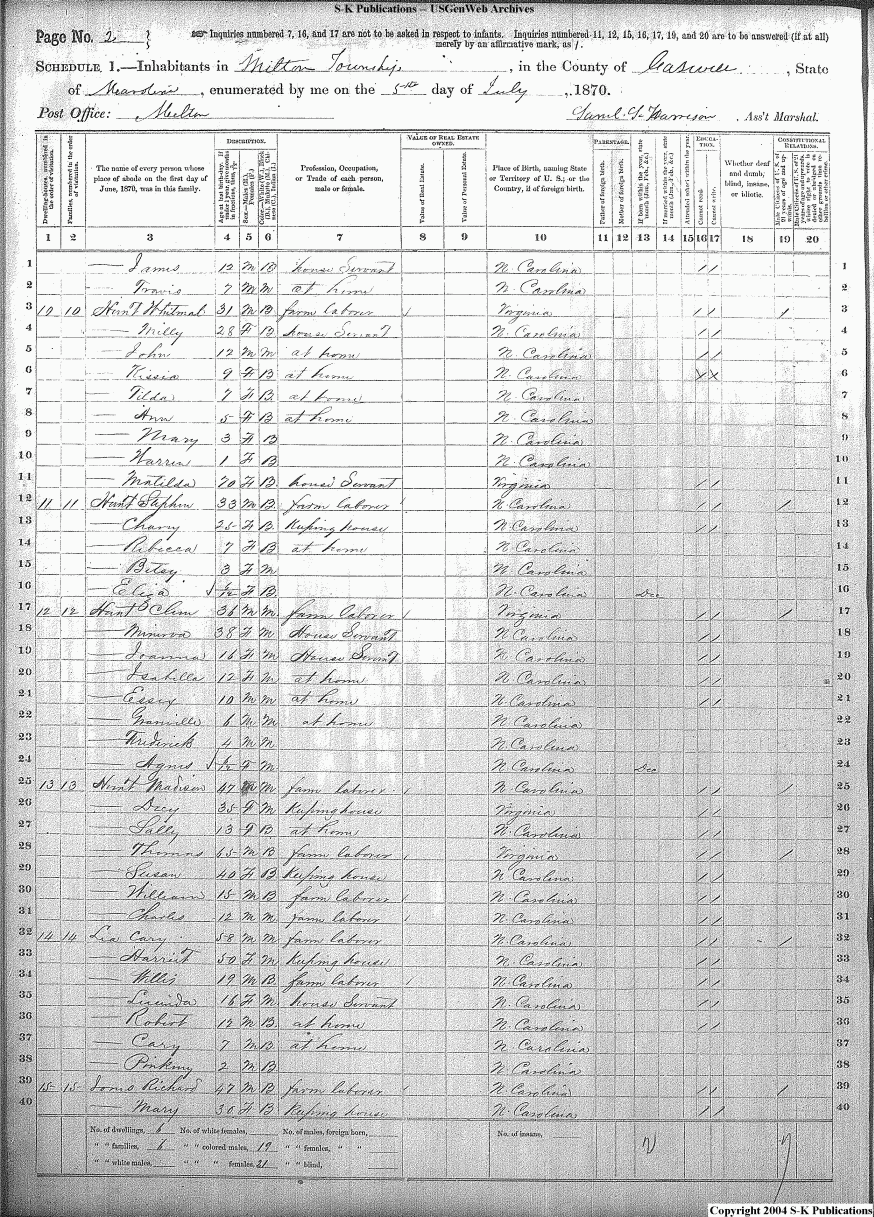 S-K Publications – USGenWeb Archives
Page No. 2
Inquiries numbered 7, 16, and 17 are not to be asked in respect to infants. Inquiries numbered 11, 12, 15, 16, 17, 19, and 20 are to be answered (if at all)
merely by an affirmative mark, as /.
Schedule 1.—Inhabitants in Milton Township, in the County of Caswell, State
of, enumerated by me on the 5th day of July, 1870.
Post Office: Milton, Ass't Marshal.
The name of every person whose place of abode on the first day of June, 1870, was in this family.
Description.
Profession, Occupation, or Trade of each person, male or female.
Value of Real Estate owned.
Place of Birth, naming State or Territory of U. S.; or the Country, if of foreign birth.
Parentage.
Education.
Whether deaf and dumb, blind, insane, or idiotic.
Constitutional Relations.
1 2 3 4 5 6 7 8 9 10 11 12 13 14 15 16 17 18 19 20
1 — James 12 M B house Servant N. Carolina / / 1
2 — Travis 7 M M at home N. Carolina 2
3 10 10 Hunt Whitmal 31 M B farm laborer Virginia / / / 3
4 — Milly 28 F B house Servant N. Carolina / / 4
5 — John 12 M M at home N. Carolina / / 5
6 — Kissia 9 F B at home N. Carolina X X 6
7 — Tilda 7 F B at home N. Carolina 7
8 — Ann 5 F B at home N. Carolina 8
9 — Mary 3 F B N. Carolina 9
10 — Warren 1 F B N. Carolina 10
11 — Matilda 70 F B house Servant Virginia / / 11
12 11 11 Hunt Stephen 33 M B farm laborer N. Carolina / / / 12
13 — Charry 25 F B Keeping house N. Carolina / / 13
14 — Rebecca 7 F B at home N. Carolina 14
15 — Betsy 3 F M N. Carolina 15
16 — Eliza F B N. Carolina Dec 16
17 12 12 Hunt Clem 36 M M farm laborer Virginia / / / 17
18 — Minerva 38 F M House Servant N. Carolina / / 18
19 — Joanna 16 F M House Servant N. Carolina / / 19
20 — Isabella 12 F M at home N. Carolina / / 20
21 — Essex 10 M M at home N. Carolina / / 21
22 — Granville 6 M M at home N. Carolina 22
23 — Frederick 4 M M N. Carolina 23
24 — Agnes F M N. Carolina Dec 24
25 13 13 Hunt Madison 47 M M farm laborer N. Carolina / / / 25
26 — 35 F M Keeping house Virginia / / 26
27 — Sally 13 F B at home N. Carolina / / 27
28 — Thomas 65 M B farm laborer Virginia / / / 28
29 — Susan 40 F B Keeping house N. Carolina / / 29
30 — William 15 M B farm laborer N. Carolina / / 30
31 — Charles 12 M M farm laborer N. Carolina / / 31
32 14 14 Lea Cary 58 M M farm laborer N. Carolina / / / 32
33 — Harriet 50 F M Keeping house N. Carolina / / 33
34 — Willis 19 M B farm laborer N. Carolina / / 34
35 — Lucinda 16 F M house Servant N. Carolina / / 35
36 — Robert 12 M B at home N. Carolina / / 36
37 — Cary 7 M B at home N. Carolina 37
38 — Pinkney 2 M B N. Carolina 38
39 15 15 Richard 47 M B farm laborer N. Carolina / / / 39
40 — Mary 30 F B Keeping house N. Carolina / / 40
No. of dwellings, 6 No. of white females, No. of males, foreign born, No. of insane,
" " families, 6 " " colored males, 19 " " females, " "
" " white males, " " " females, 21 " " blind,
Copyright 2004 S-K Publications